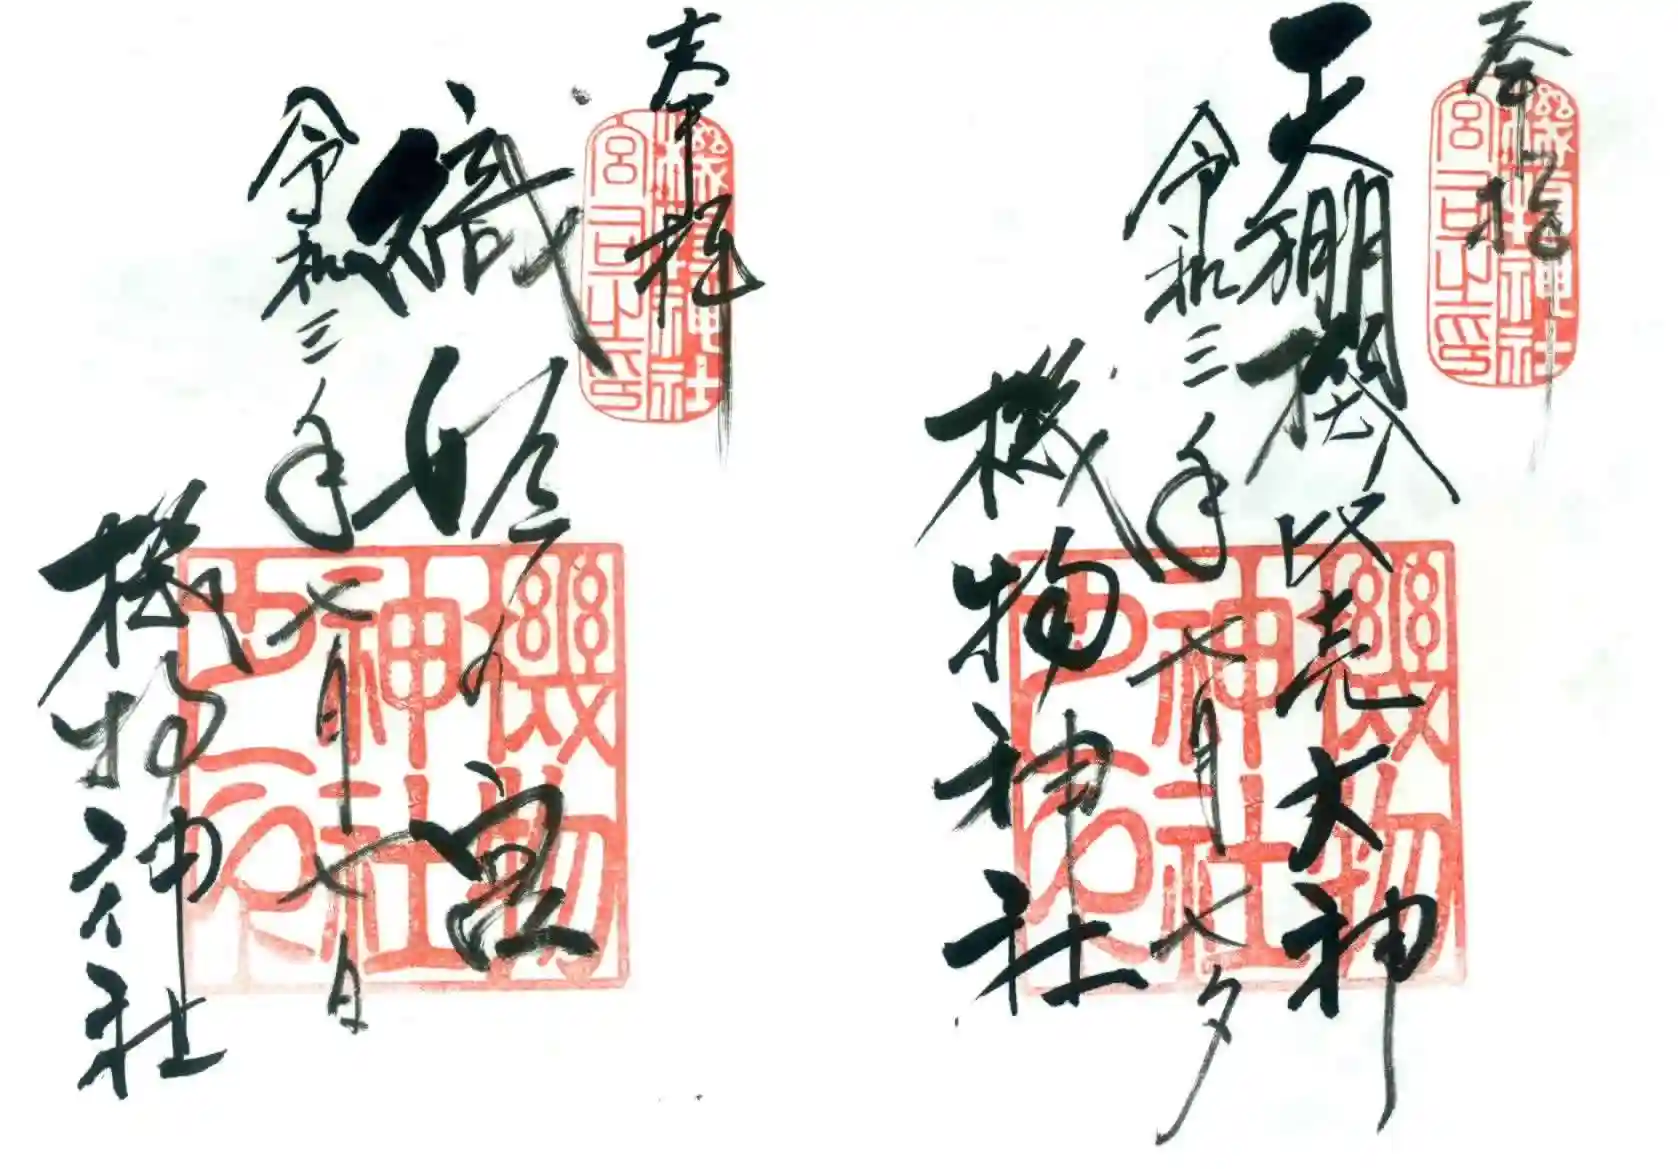 奉拝
機物神社
宮司之印
天棚機比売大神
令和三年七月七夕
機物神社
機物
神社
之印
奉拝
機物神社
宮司之印
織姫の宮
令和三年七月七日
機物神社
機物
神社
之印